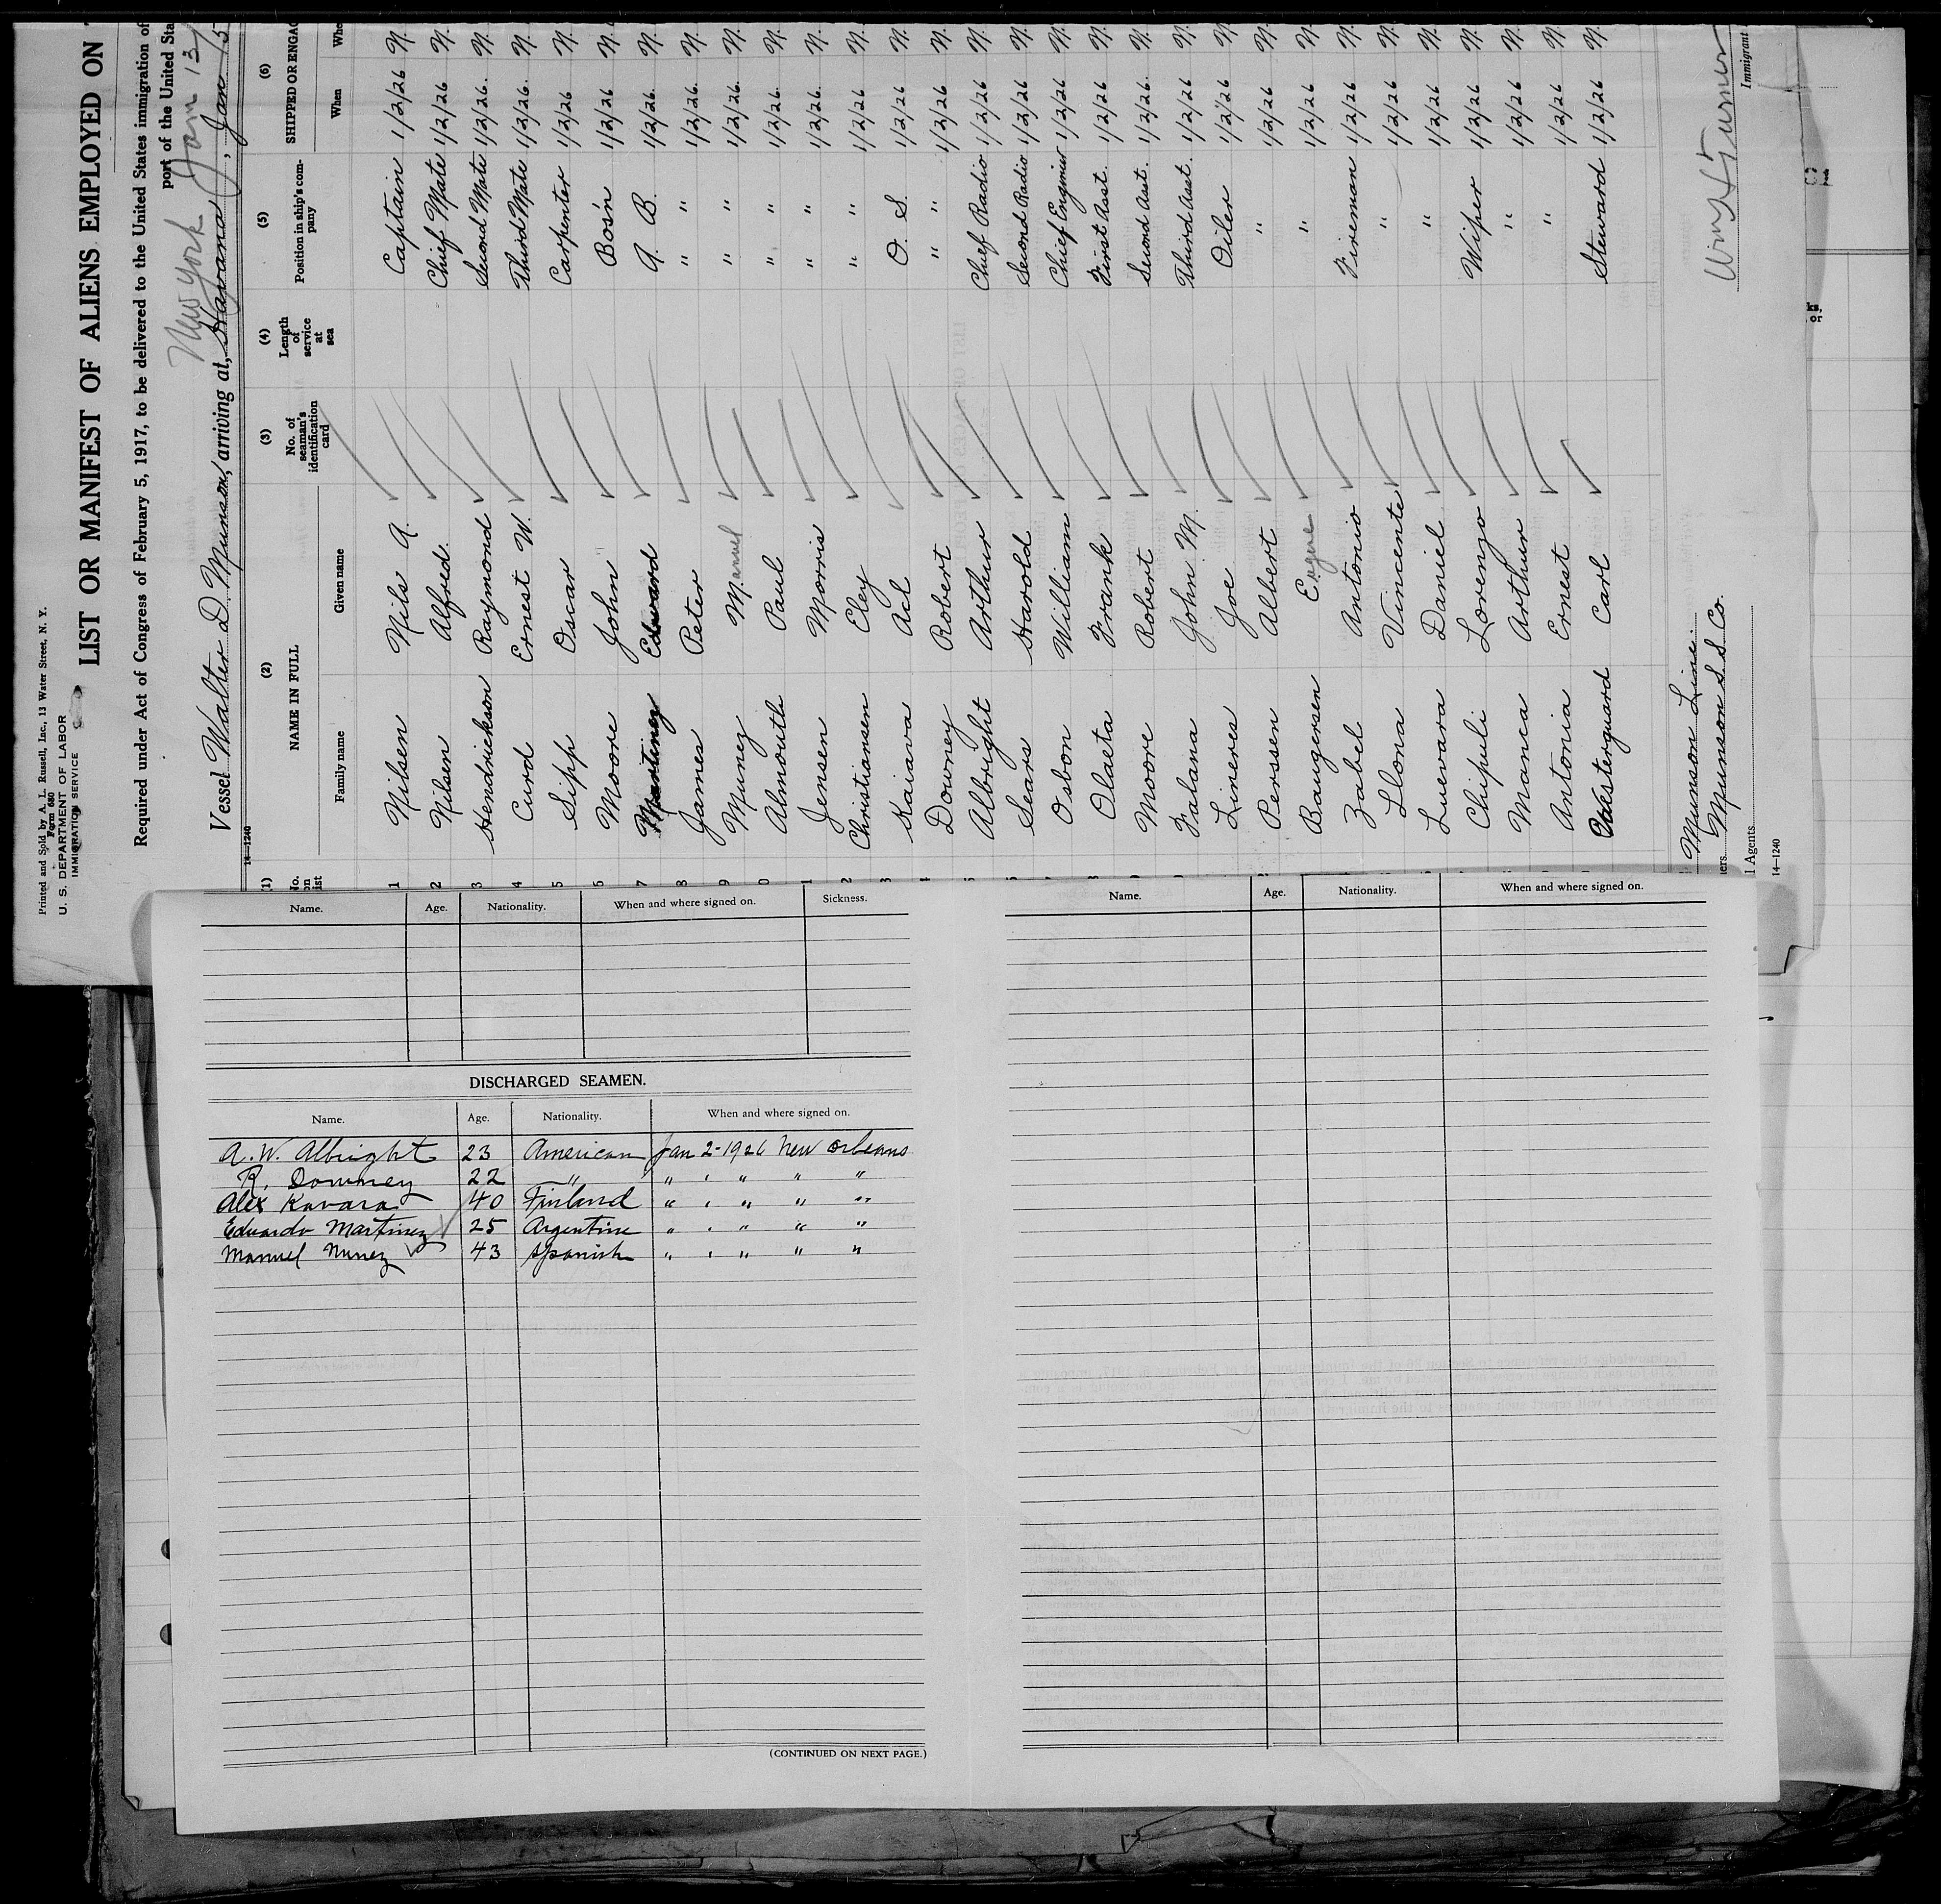 Printed and Sold by A. L. Russell, Inc., 13 Water Street, N. Y.
Form 680
U. S. DEPARTMENT OF LABOR
IMMIGRATION SERVICE
LIST OR MANIFEST OF ALIENS EMPLOYED ON
Required under Act of Congress of February 5, 1917, to be delivered to the United States immigration of
port of the United Sta
New York Jan 13
Vessel Walter D. Munson, arriving at, Havana, Jan 5
14—1240
(1) (2) (3) (4) (5) (6)
No. on list NAME IN FULL No. of seaman's identification card Length of service at sea Position in ship's company SHIPPED OR ENGAG
Family name Given name When Whe
1 Nilsen Nils A. Captain 1/2/26 N.
2 Nilsen Alfred. Chief Mate 1/2/26 N.
3 Hendrickson Raymond Second Mate 1/2/26. N.
4 Curd Ernest W. Third Mate 1/2/26. N.
5 Sipp Oscar Carpenter 1/2/26 N.
6 Moore John Bos'n 1/2/26 N.
7 Martinez Edward A. B. 1/2/26. N.
8 James Peter " " 1/2/26. N.
9 Munez Manuel " " 1/2/26. N.
0 Almouth Paul " " 1/2/26. N.
1 Jensen Morris " " 1/2/26. N.
2 Christiansen Eley " " 1/2/26. N.
3 Kaiava Acl O. S. 1/2/26 N.
4 Downey Robert " " 1/2/26. N.
5 Albright Arthur Chief Radio 1/2/26 N.
6 Sears Harold Second Radio 1/2/26 N.
Osbon William Chief Engineer 1/2/26 N.
8 Olaeta Frank First Asst. 1/2/26 N.
Moore Robert Second Asst. 1/2/26. N.
Falana John M. Third Asst. 1/2/26 N.
Lineres Joe Oiler 1/2/26 N.
Perssen Albert " 1/2/26 N.
Baugersen Eugene " 1/2/26 N.
Zabel Antonio Fireman 1/2/26 N.
Llona Vincente " 1/2/26 N.
Luevara Daniel " 1/2/26 N.
Chipuli Lorenzo Wiper 1/2/26 N.
Manca Arthur " 1/2/26 N.
Antonia Ernest " 1/2/26 N.
Vesterguard Carl Steward 1/2/26 N.
Munson Line.
ners Munson S. S. Co.
l Agents
14—1240
Immigrant
ks,
or
Name. Age. Nationality. When and where signed on. Sickness.
DISCHARGED SEAMEN.
Name. Age. Nationality. When and where signed on.
A. W. Albright 23 American Jan 2-1926 New Orleans
R. Downey 22 " " " " " "
Alex Kavara 40 Finland " " " " "
Eduardo Martinez 25 Argentine " " " " "
Manuel Nunez 43 Spanish " " " " "
(CONTINUED ON NEXT PAGE.)
Name. Age. Nationality. When and where signed on.